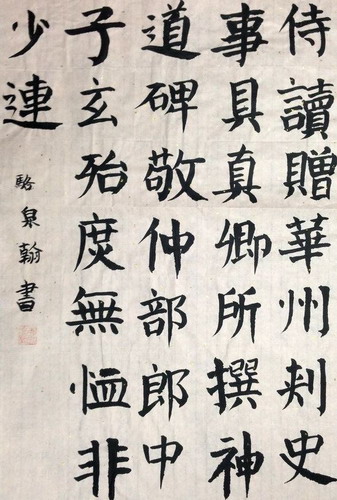 侍讀贈華州刾史
事具真卿所撰神
道碑敬仲部郎中
子玄殆庶無恤非
少連
駱泉翰書